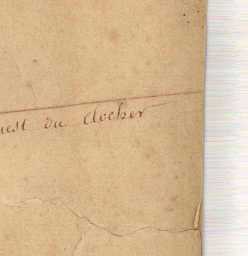 uest du clocher